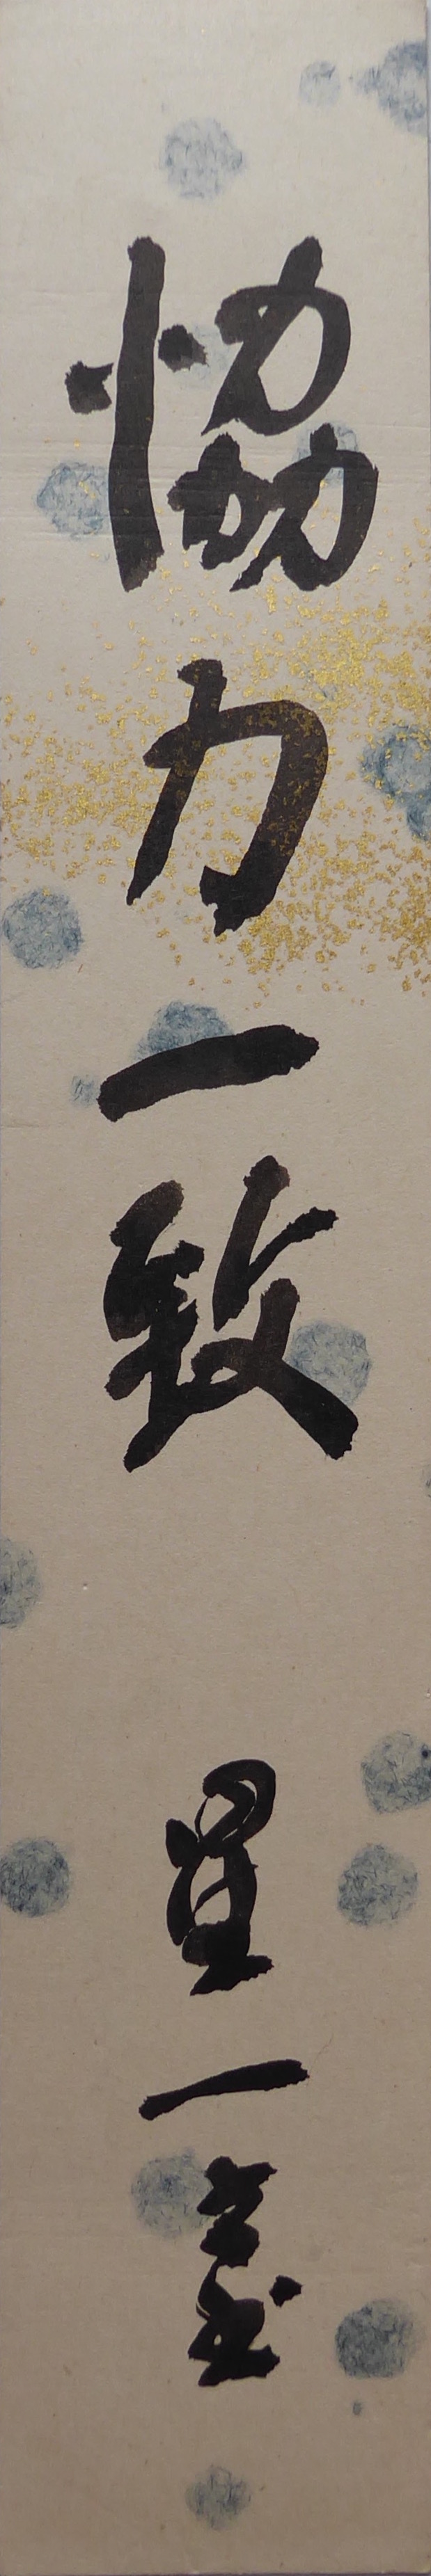 恊力一致 星一書